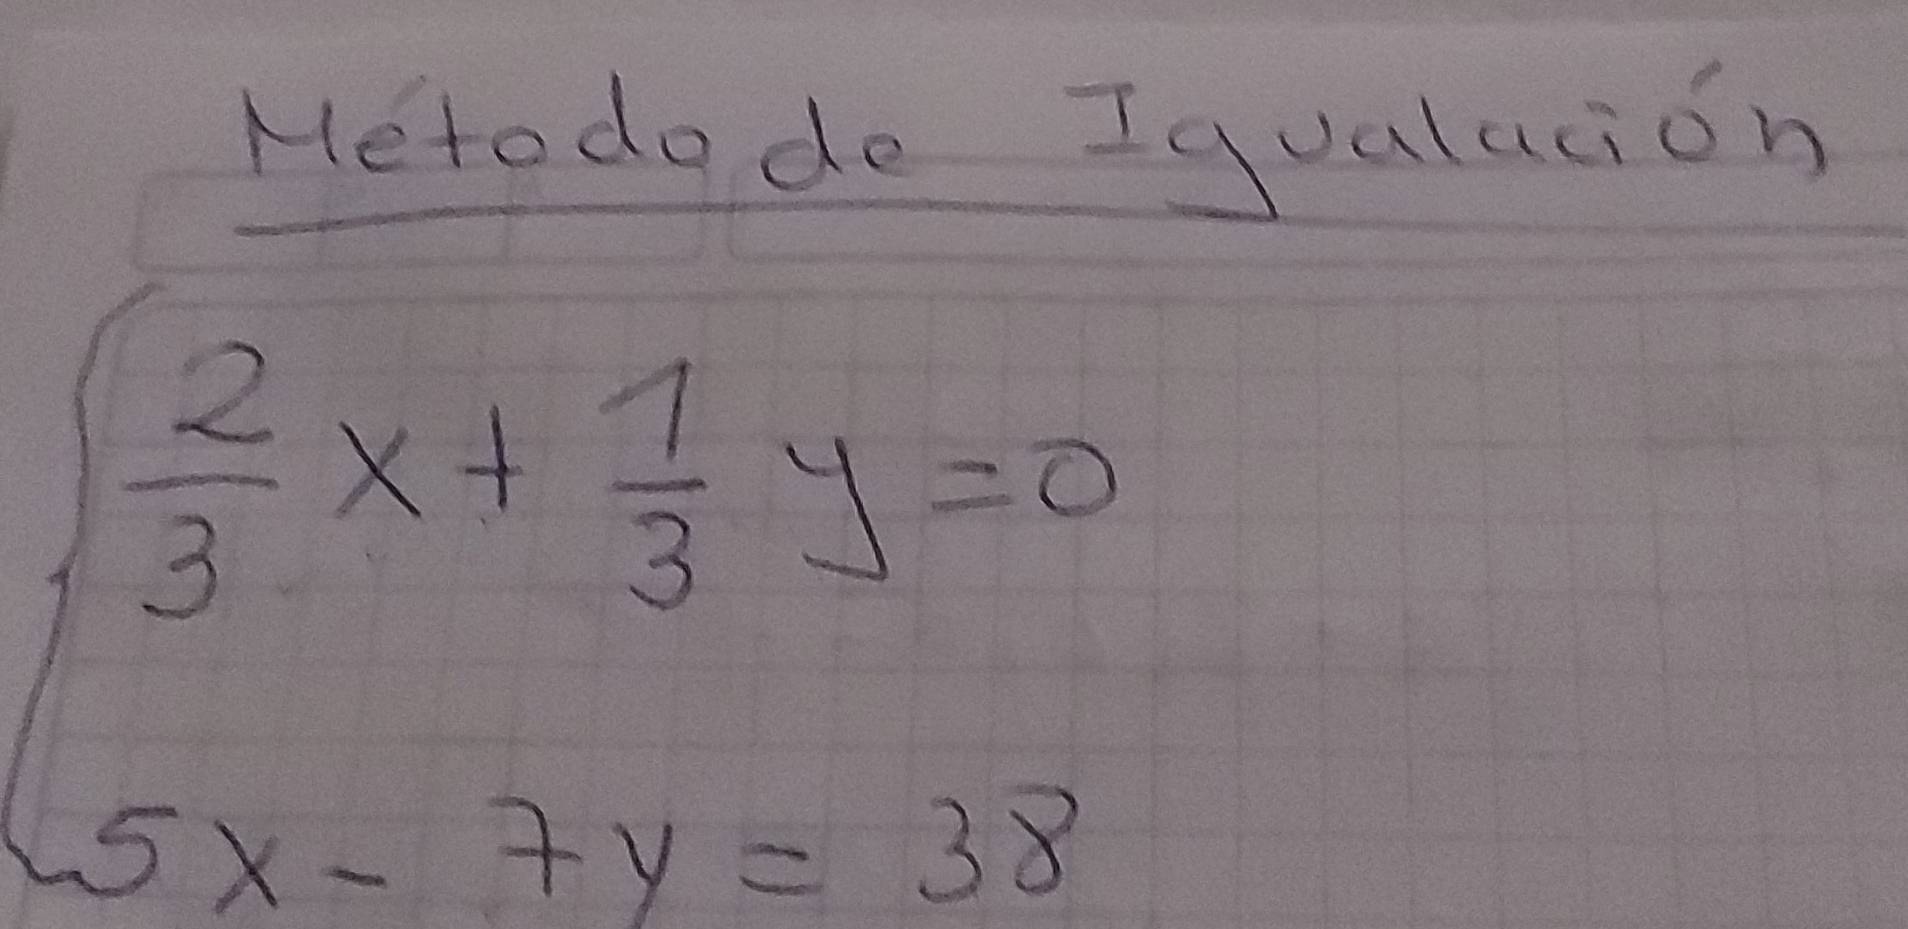 Método de Igualación
2/3 x + 1/3 y = 0
5x - 7y = 38